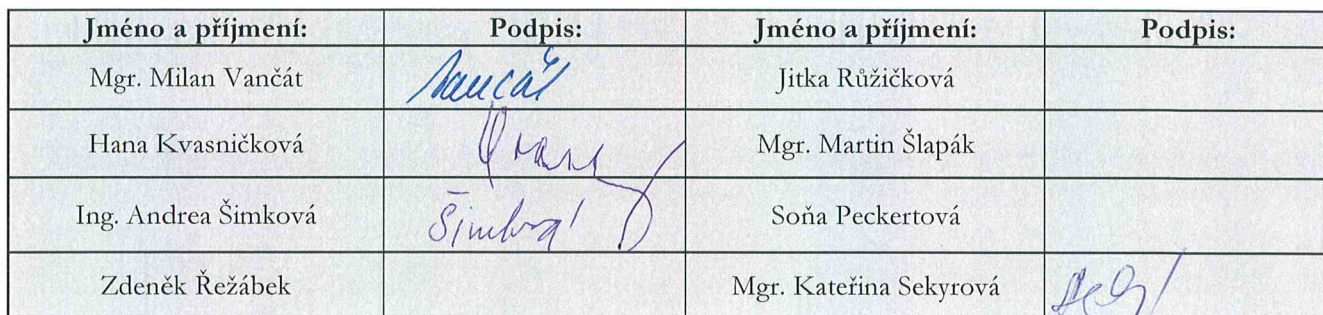 Jméno a příjmení: Podpis: Jméno a příjmení: Podpis:
Mgr. Milan Vančát Vančát Jitka Růžičková
Hana Kvasničková Mgr. Martin Šlapák
Ing. Andrea Šimková Šimková Soňa Peckertová
Zdeněk Řežábek Mgr. Kateřina Sekyrová